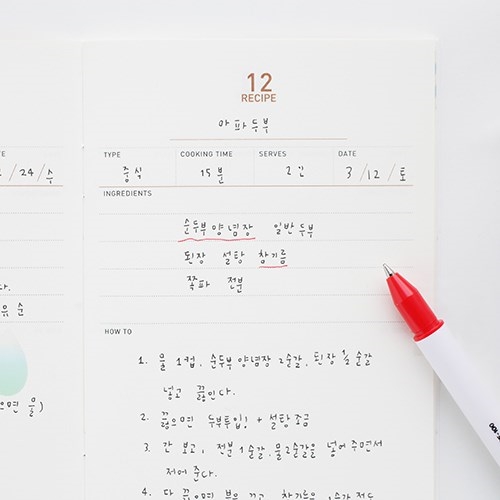 12
RECIPE
마파두부
TYPE COOKING TIME SERVES DATE
중식 15분 2인 3/12/토
/24/수
INGREDIENTS
순두부양념장 일반두부
된장 설탕 참기름
쪽파 전분
다.
유 순
으면 물)
HOW TO
1. 물 1컵, 순두부양념장 2숟갈, 된장 1/2 숟갈
넣고 끓인다.
2. 끓으면 두부투입! + 설탕 조금
3. 간 보고, 전분 1숟갈, 물2숟갈을 넣어주면서
저어준다.
4. 다 끓으면 불을 끄고 참기름